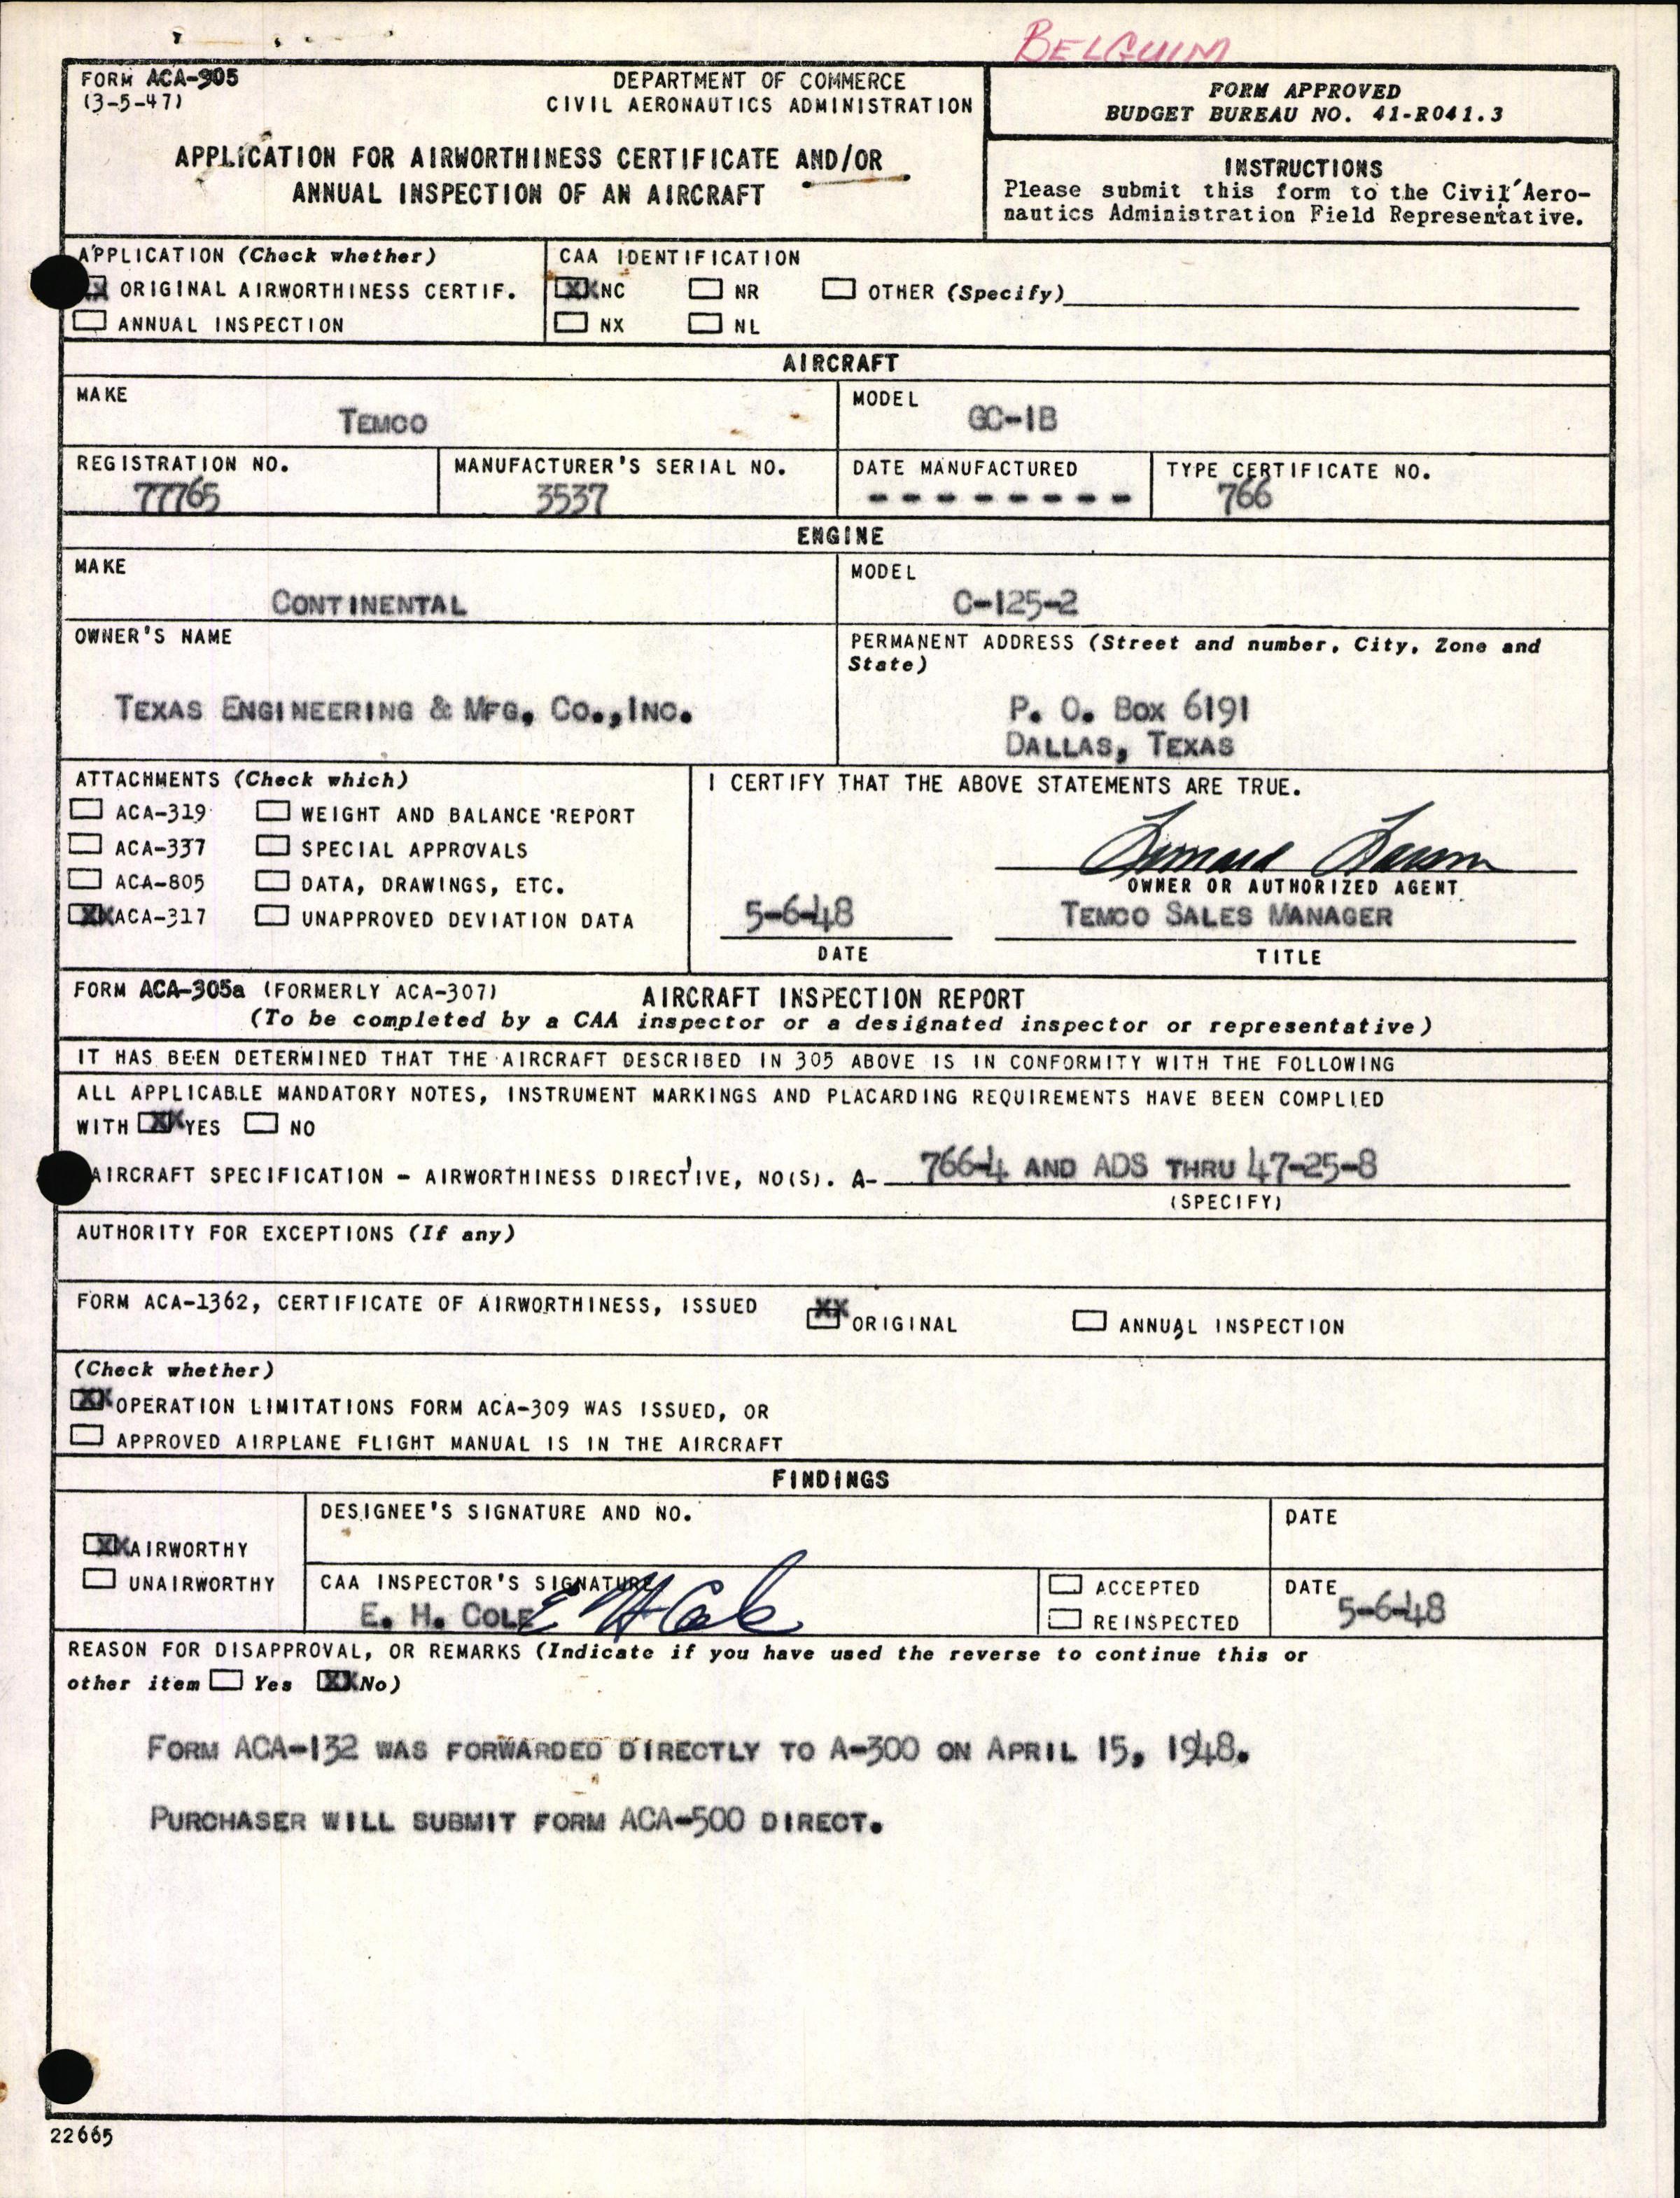 BELGUIM
FORM ACA-305
(3-5-47)
DEPARTMENT OF COMMERCE
CIVIL AERONAUTICS ADMINISTRATION
APPLICATION FOR AIRWORTHINESS CERTIFICATE AND/OR
ANNUAL INSPECTION OF AN AIRCRAFT
FORM APPROVED
BUDGET BUREAU NO. 41-R041.3
INSTRUCTIONS
Please submit this form to the Civil Aero-
nautics Administration Field Representative.
APPLICATION (Check whether)
X ORIGINAL AIRWORTHINESS CERTIF.
ANNUAL INSPECTION
CAA IDENTIFICATION
XX NC NR OTHER (Specify)
NX NL
AIRCRAFT
MAKE
TEMCO
MODEL
GC-1B
REGISTRATION NO.
77765
MANUFACTURER'S SERIAL NO.
3537
DATE MANUFACTURED
- - - - - - - -
TYPE CERTIFICATE NO.
766
ENGINE
MAKE
CONTINENTAL
MODEL
C-125-2
OWNER'S NAME
TEXAS ENGINEERING & MFG. CO.,INC.
PERMANENT ADDRESS (Street and number, City, Zone and
State)
P. O. BOX 6191
DALLAS, TEXAS
ATTACHMENTS (Check which)
ACA-319 WEIGHT AND BALANCE REPORT
ACA-337 SPECIAL APPROVALS
ACA-805 DATA, DRAWINGS, ETC.
XX ACA-317 UNAPPROVED DEVIATION DATA
I CERTIFY THAT THE ABOVE STATEMENTS ARE TRUE.
OWNER OR AUTHORIZED AGENT
5-6-48
TEMCO SALES MANAGER
DATE
TITLE
FORM ACA-305a (FORMERLY ACA-307) AIRCRAFT INSPECTION REPORT
(To be completed by a CAA inspector or a designated inspector or representative)
IT HAS BEEN DETERMINED THAT THE AIRCRAFT DESCRIBED IN 305 ABOVE IS IN CONFORMITY WITH THE FOLLOWING
ALL APPLICABLE MANDATORY NOTES, INSTRUMENT MARKINGS AND PLACARDING REQUIREMENTS HAVE BEEN COMPLIED
WITH XX YES NO
AIRCRAFT SPECIFICATION - AIRWORTHINESS DIRECTIVE, NO(S). A- 766-4 AND ADS THRU 47-25-8
(SPECIFY)
AUTHORITY FOR EXCEPTIONS (If any)
FORM ACA-1362, CERTIFICATE OF AIRWORTHINESS, ISSUED XX ORIGINAL ANNUAL INSPECTION
(Check whether)
XX OPERATION LIMITATIONS FORM ACA-309 WAS ISSUED, OR
APPROVED AIRPLANE FLIGHT MANUAL IS IN THE AIRCRAFT
FINDINGS
XX AIRWORTHY
UNAIRWORTHY
DESIGNEE'S SIGNATURE AND NO.
DATE
CAA INSPECTOR'S SIGNATURE
E. H. COLE E H Cole
ACCEPTED
REINSPECTED
DATE
5-6-48
REASON FOR DISAPPROVAL, OR REMARKS (Indicate if you have used the reverse to continue this or
other item Yes XX No)
FORM ACA-132 WAS FORWARDED DIRECTLY TO A-300 ON APRIL 15, 1948.
PURCHASER WILL SUBMIT FORM ACA-500 DIRECT.
22665